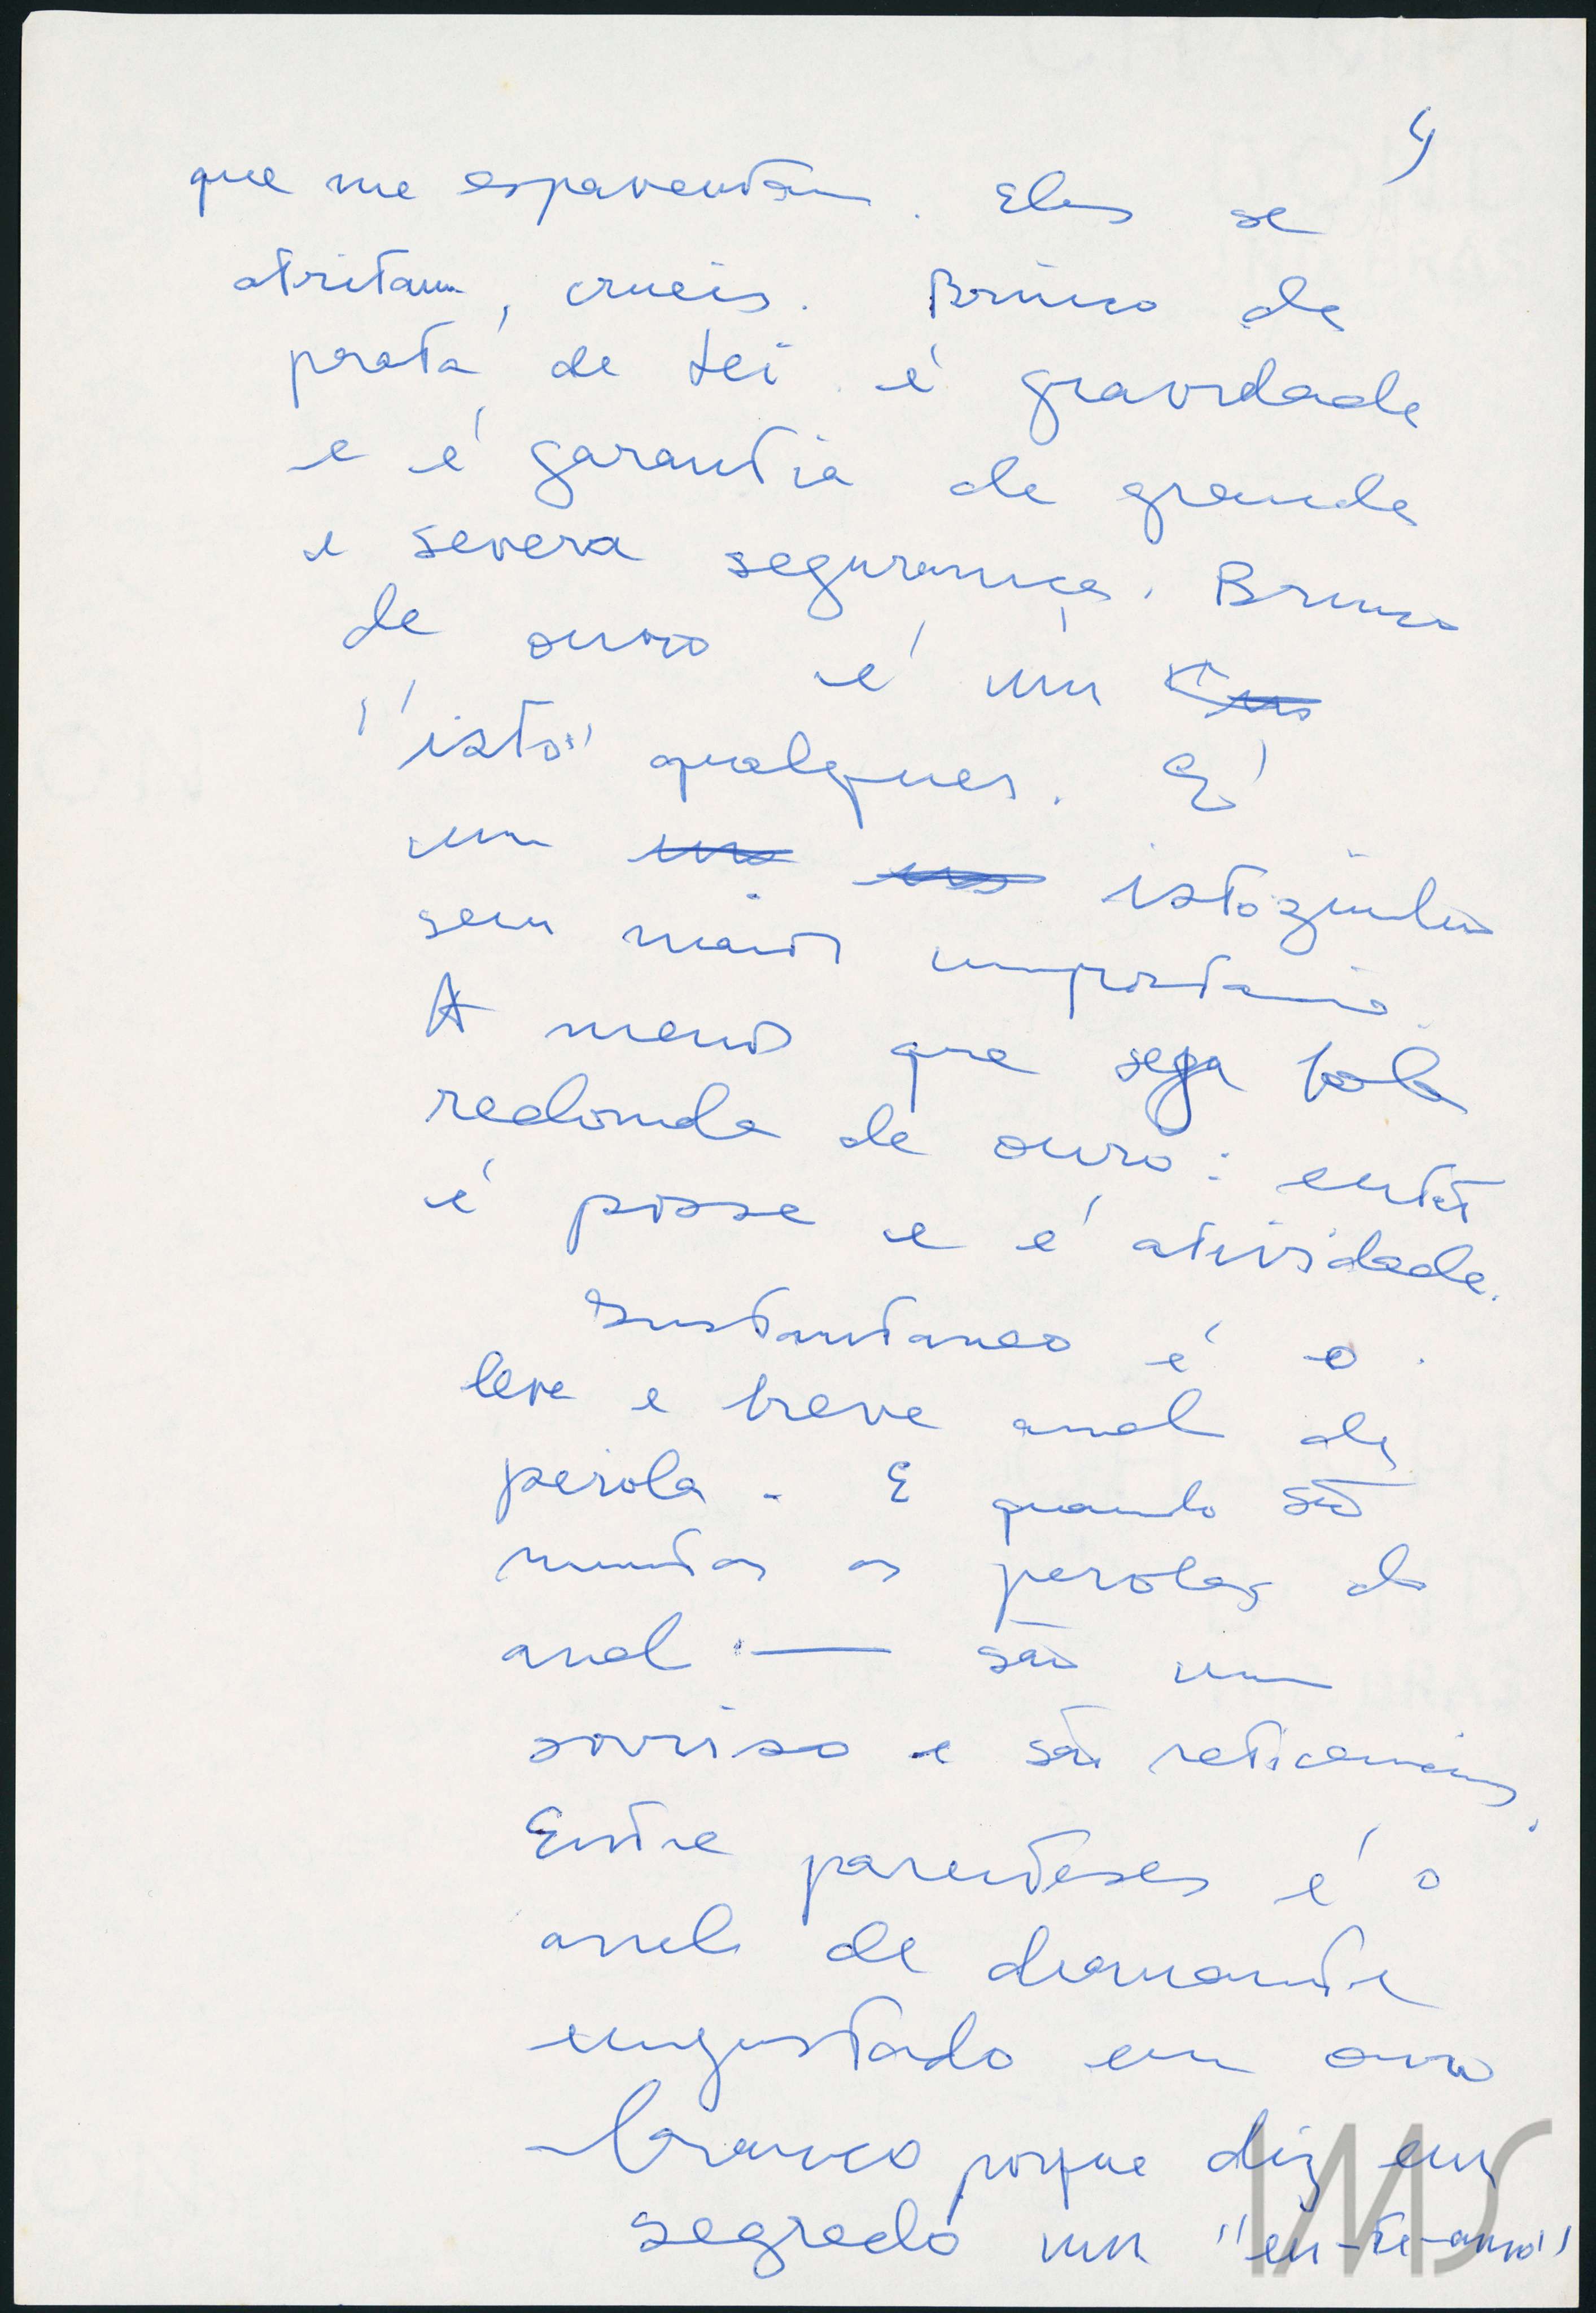 4
que me espaventam. Eles se
atritam, crueis. Brinco de
prata de lei é gravidade
e é garantia de grande
e severa segurança. Brinco
de ouro é um
"isto" qualquer. É
um istozinho
sem maior importancia.
A menos que seja bola
redonda de ouro: então
é posse e é atividade.
Instantaneo é o
leve e breve anel de
perola. E quando são
muitas as perolas do
anel — são um
sorriso e são reticencias.
Entre parenteses é o
anel de diamante
engastado em ouro
branco porque diz em
segredo um "eu-te-amo"
IMS